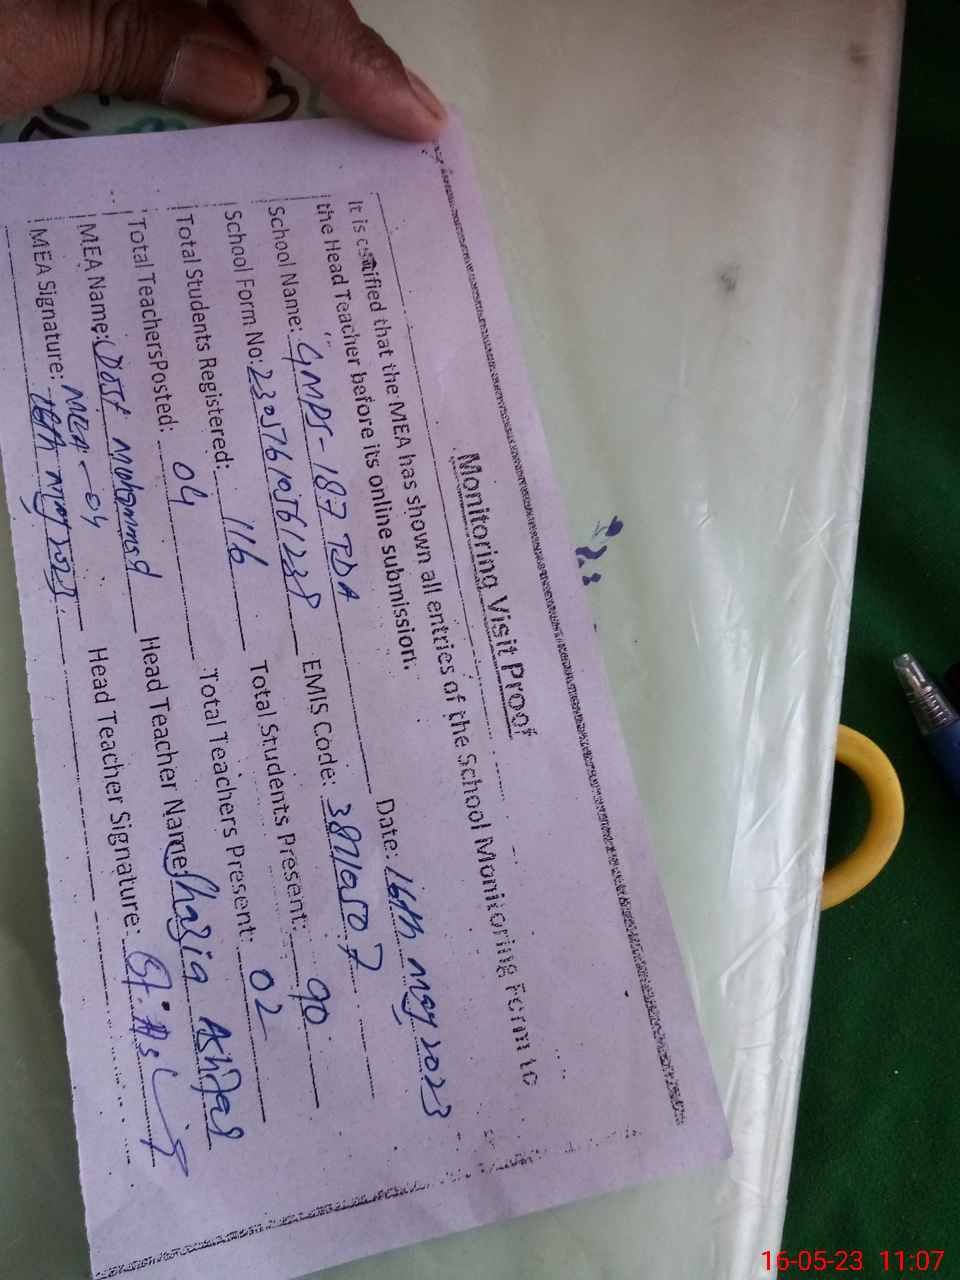 Monitoring Visit Proof
It is certified that the MEA has shown all entries of the School Monitoring Form to
the Head Teacher before its online submission. Date: 16th may 2023
School Name: GMPS-187 TDA EMIS Code: 38710507
School Form No: 23057610561238 Total Students Present: 90
Total Students Registered: 116 Total Teachers Present: 02
Total TeachersPosted: 04 Head Teacher Name: Shazia Ashfaq
MEA Name: Dost Muhammad Head Teacher Signature:
MEA-04
MEA Signature: 16th may 2023
16-05-23 11:07